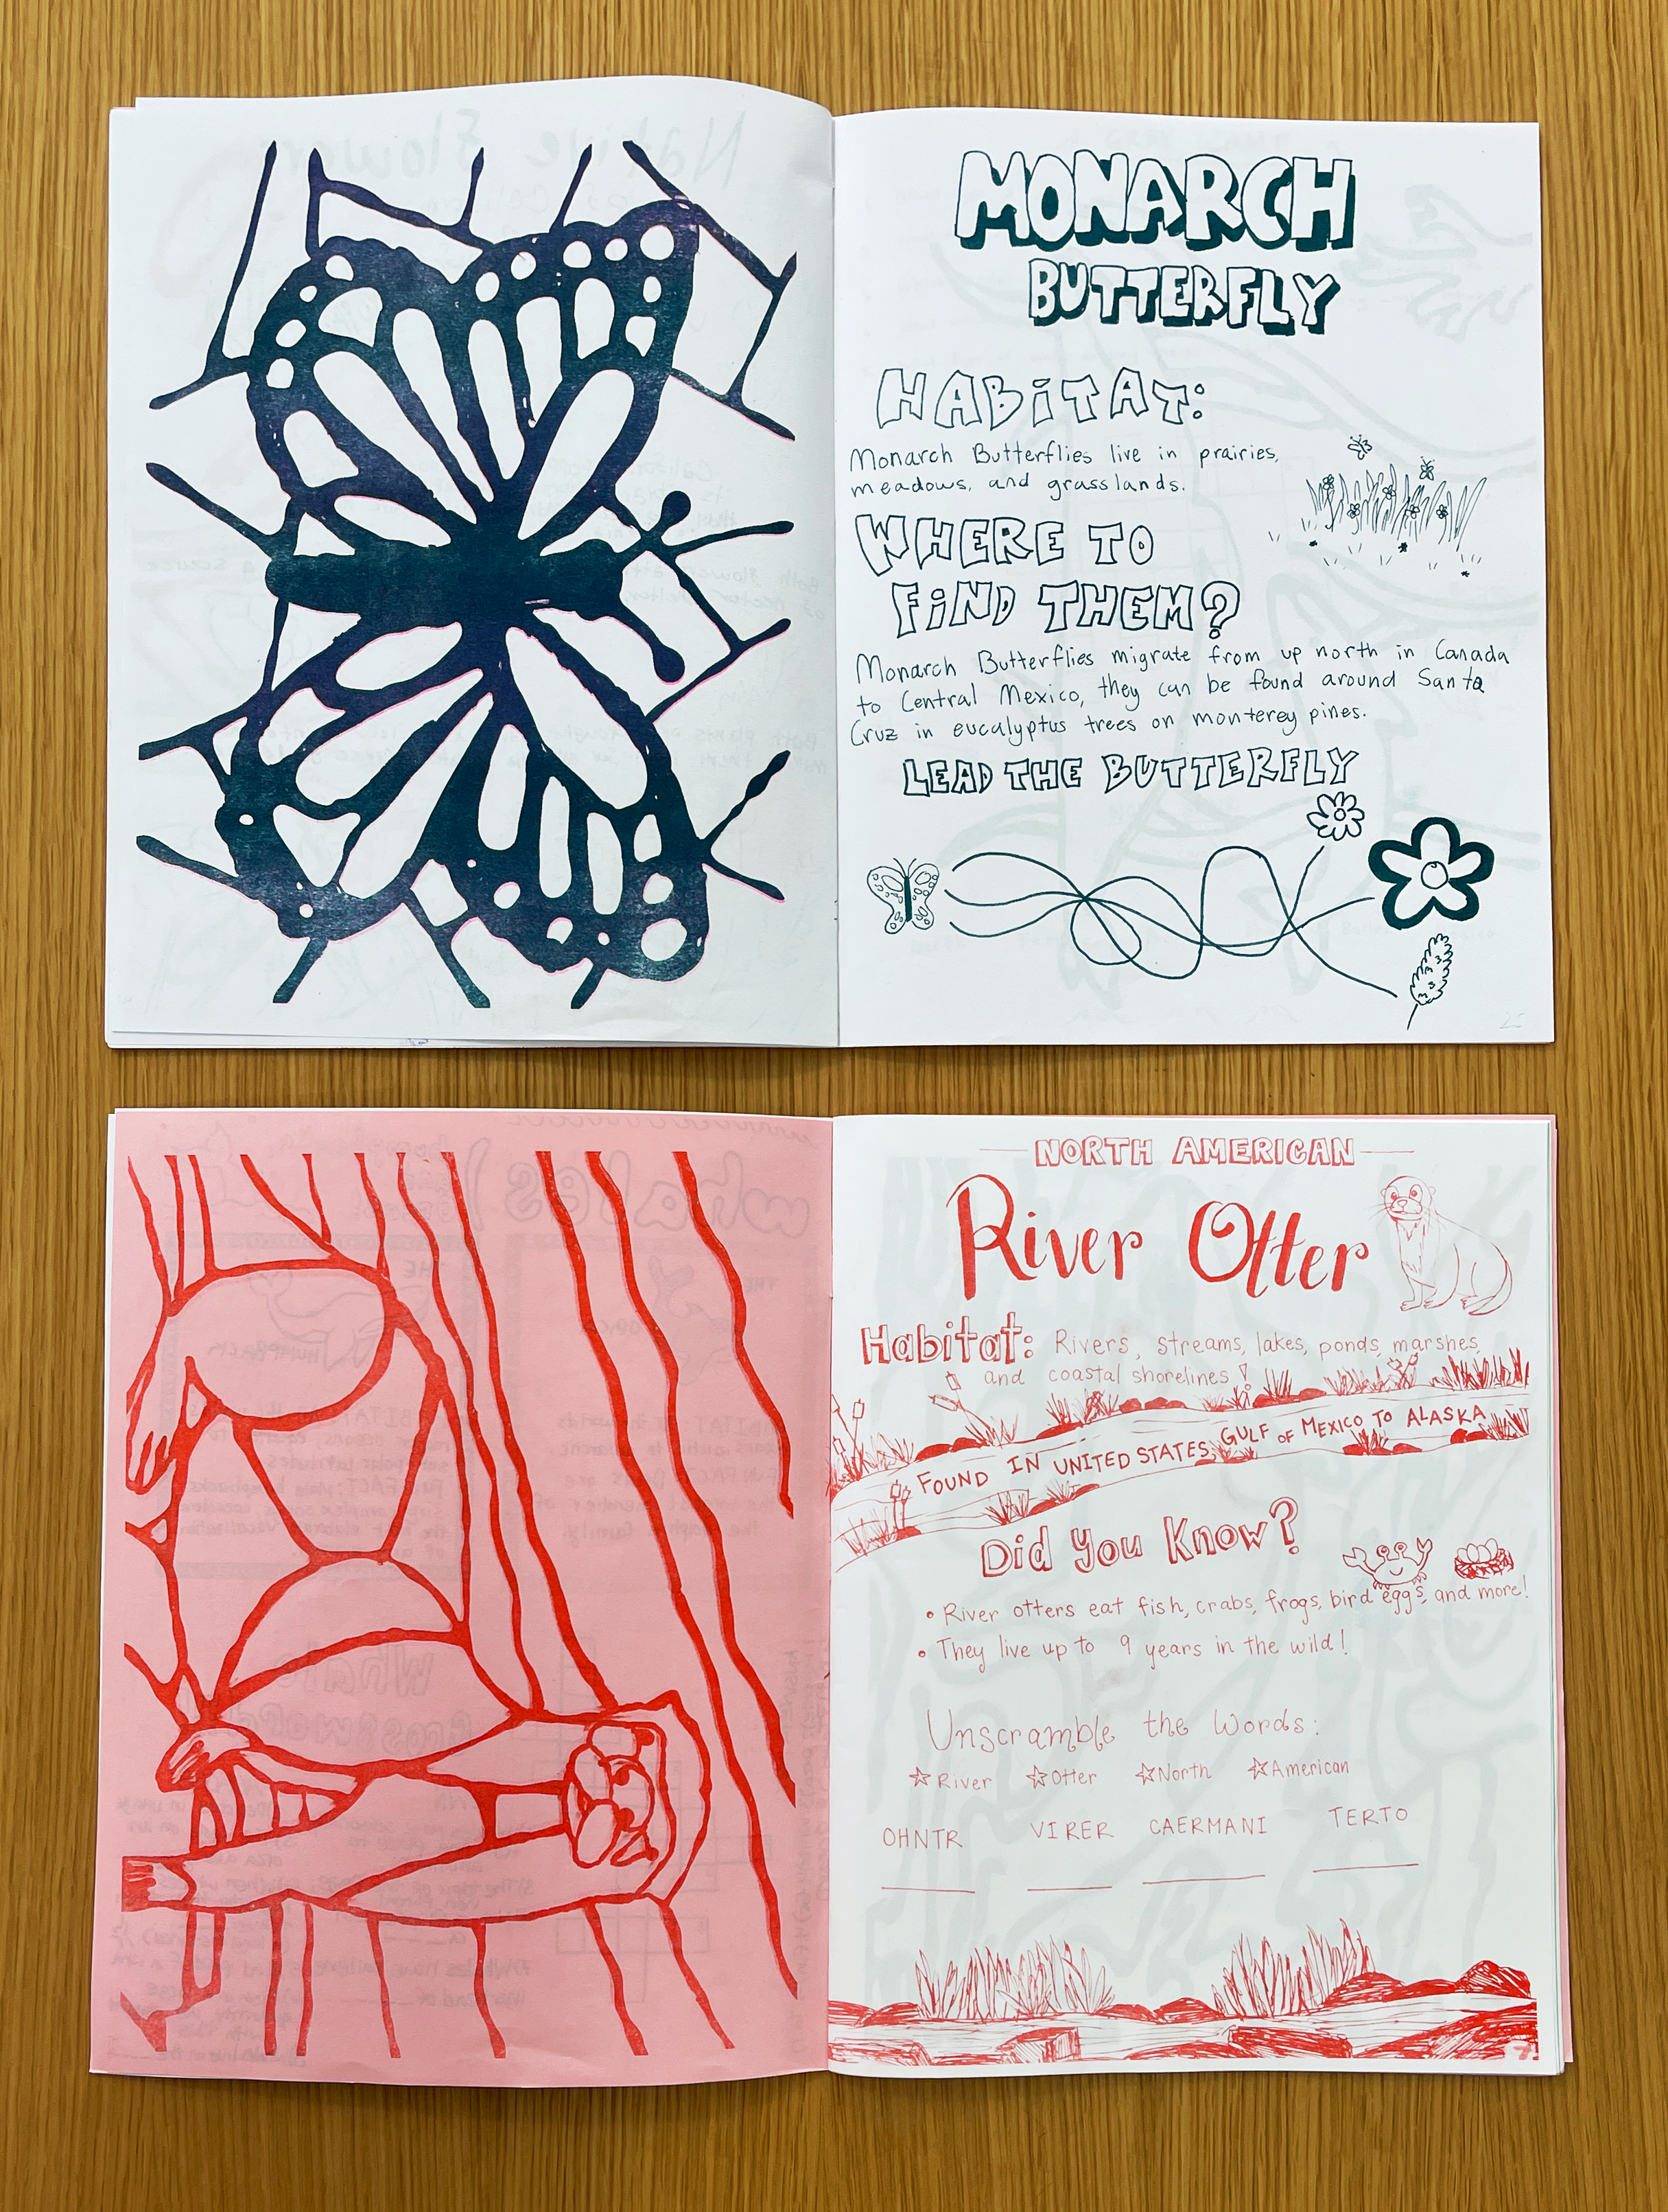 MONARCH
BUTTERFLY
HABITAT:
Monarch Butterflies live in prairies,
meadows, and grasslands.
WHERE TO
FIND THEM?
Monarch Butterflies migrate from up north in Canada
to Central Mexico, they can be found around Santa
Cruz in eucalyptus trees on monterey pines.
LEAD THE BUTTERFLY
NORTH AMERICAN
River Otter
Habitat: Rivers, streams, lakes, ponds, marshes,
and coastal shorelines!
FOUND IN UNITED STATES, GULF OF MEXICO TO ALASKA
Did You Know?
• River otters eat fish, crabs, frogs, bird eggs, and more!
• They live up to 9 years in the wild!
Unscramble the Words:
☆ River ☆ Otter ☆ North ☆ American
OHNTR VIRER CAERMANI TERTO
7